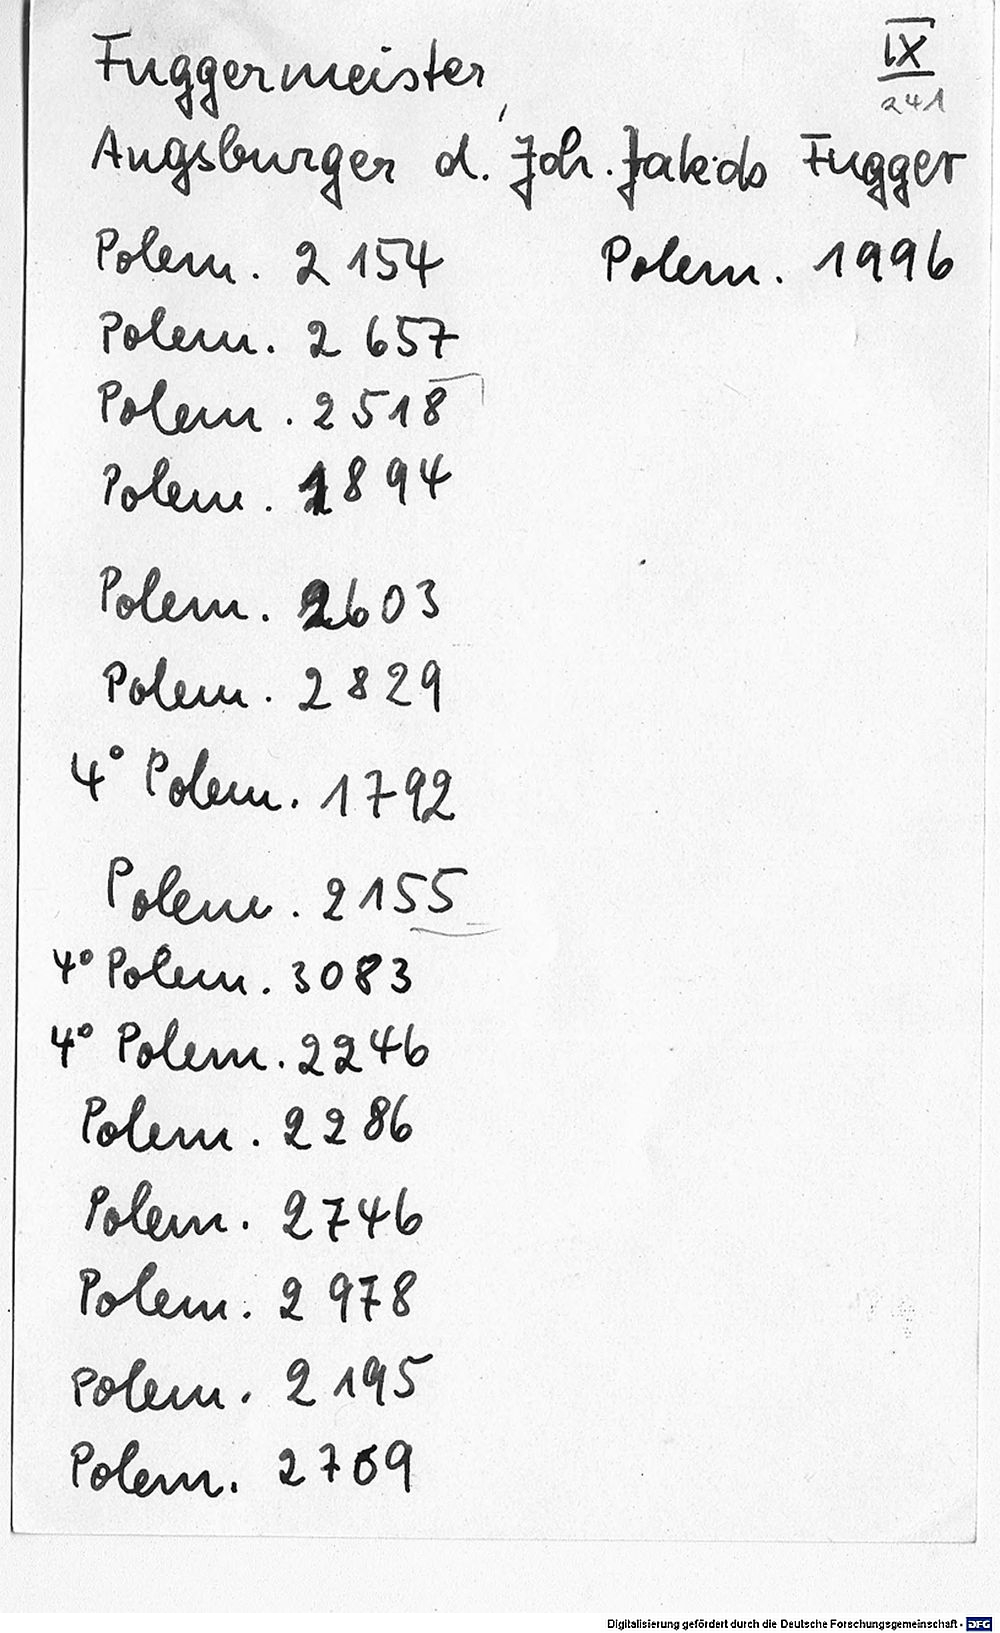 Fuggermeister,
IX
241
Augsburger d. Joh. Jakob Fugger
Polem. 2154
Polem. 1996
Polem. 2657
Polem. 2518
Polem. 1894
Polem. 2603
Polem. 2829
4° Polem. 1792
Polem. 2155
4° Polem. 3083
4° Polem. 2246
Polem. 2286
Polem. 2746
Polem. 2978
Polem. 2195
Polem. 2709
Digitalisierung gefördert durch die Deutsche Forschungsgemeinschaft - DFG